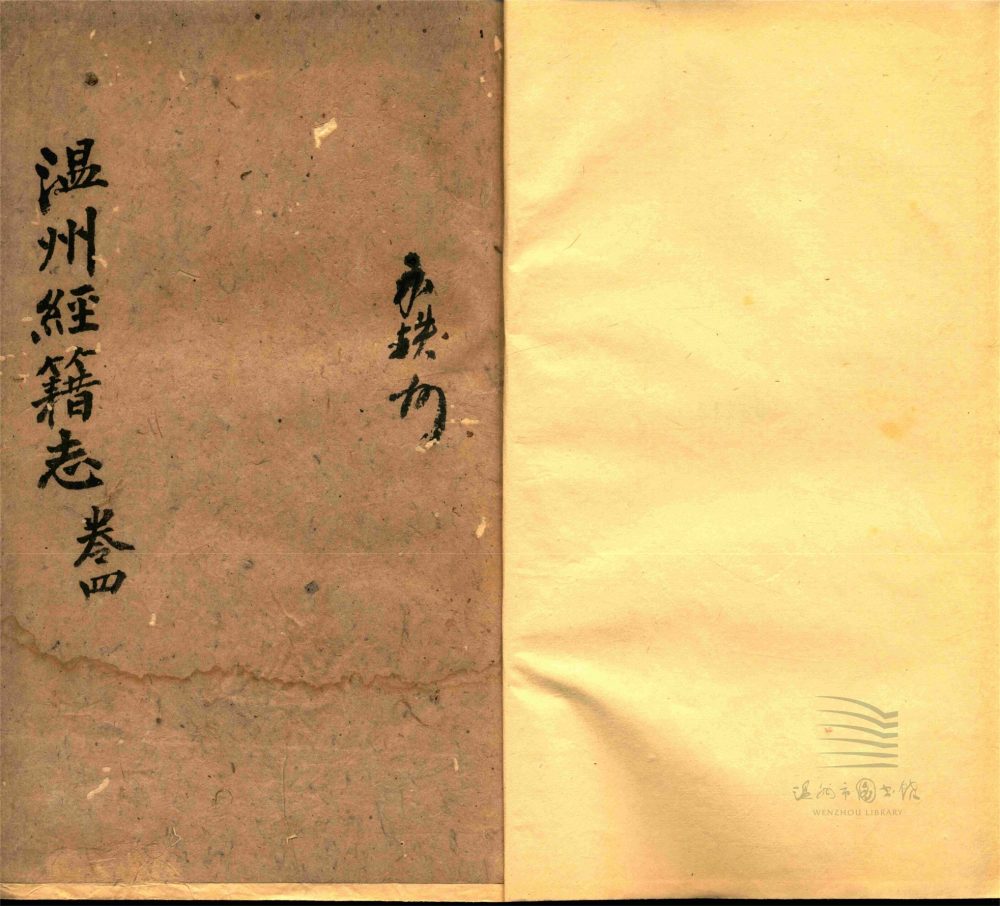 温州經籍志
卷四
温州市圖书馆
WENZHOU LIBRARY